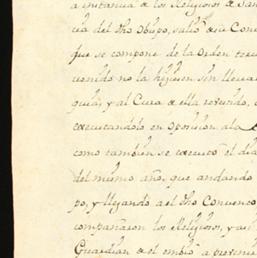 a instancia de los Religiosos de San
cia del dho Obispo, salió de su Con
que se compone de la Orden terc
venido no la hiciesen sin llevar
guia, y al Cura de ella referido, 
executandolo en oposicion a la
como tambien se executó el dia
del mismo año, que andando
po, y llegando a el dho Convento
compañaron los Religiosos, y
Guardian a el